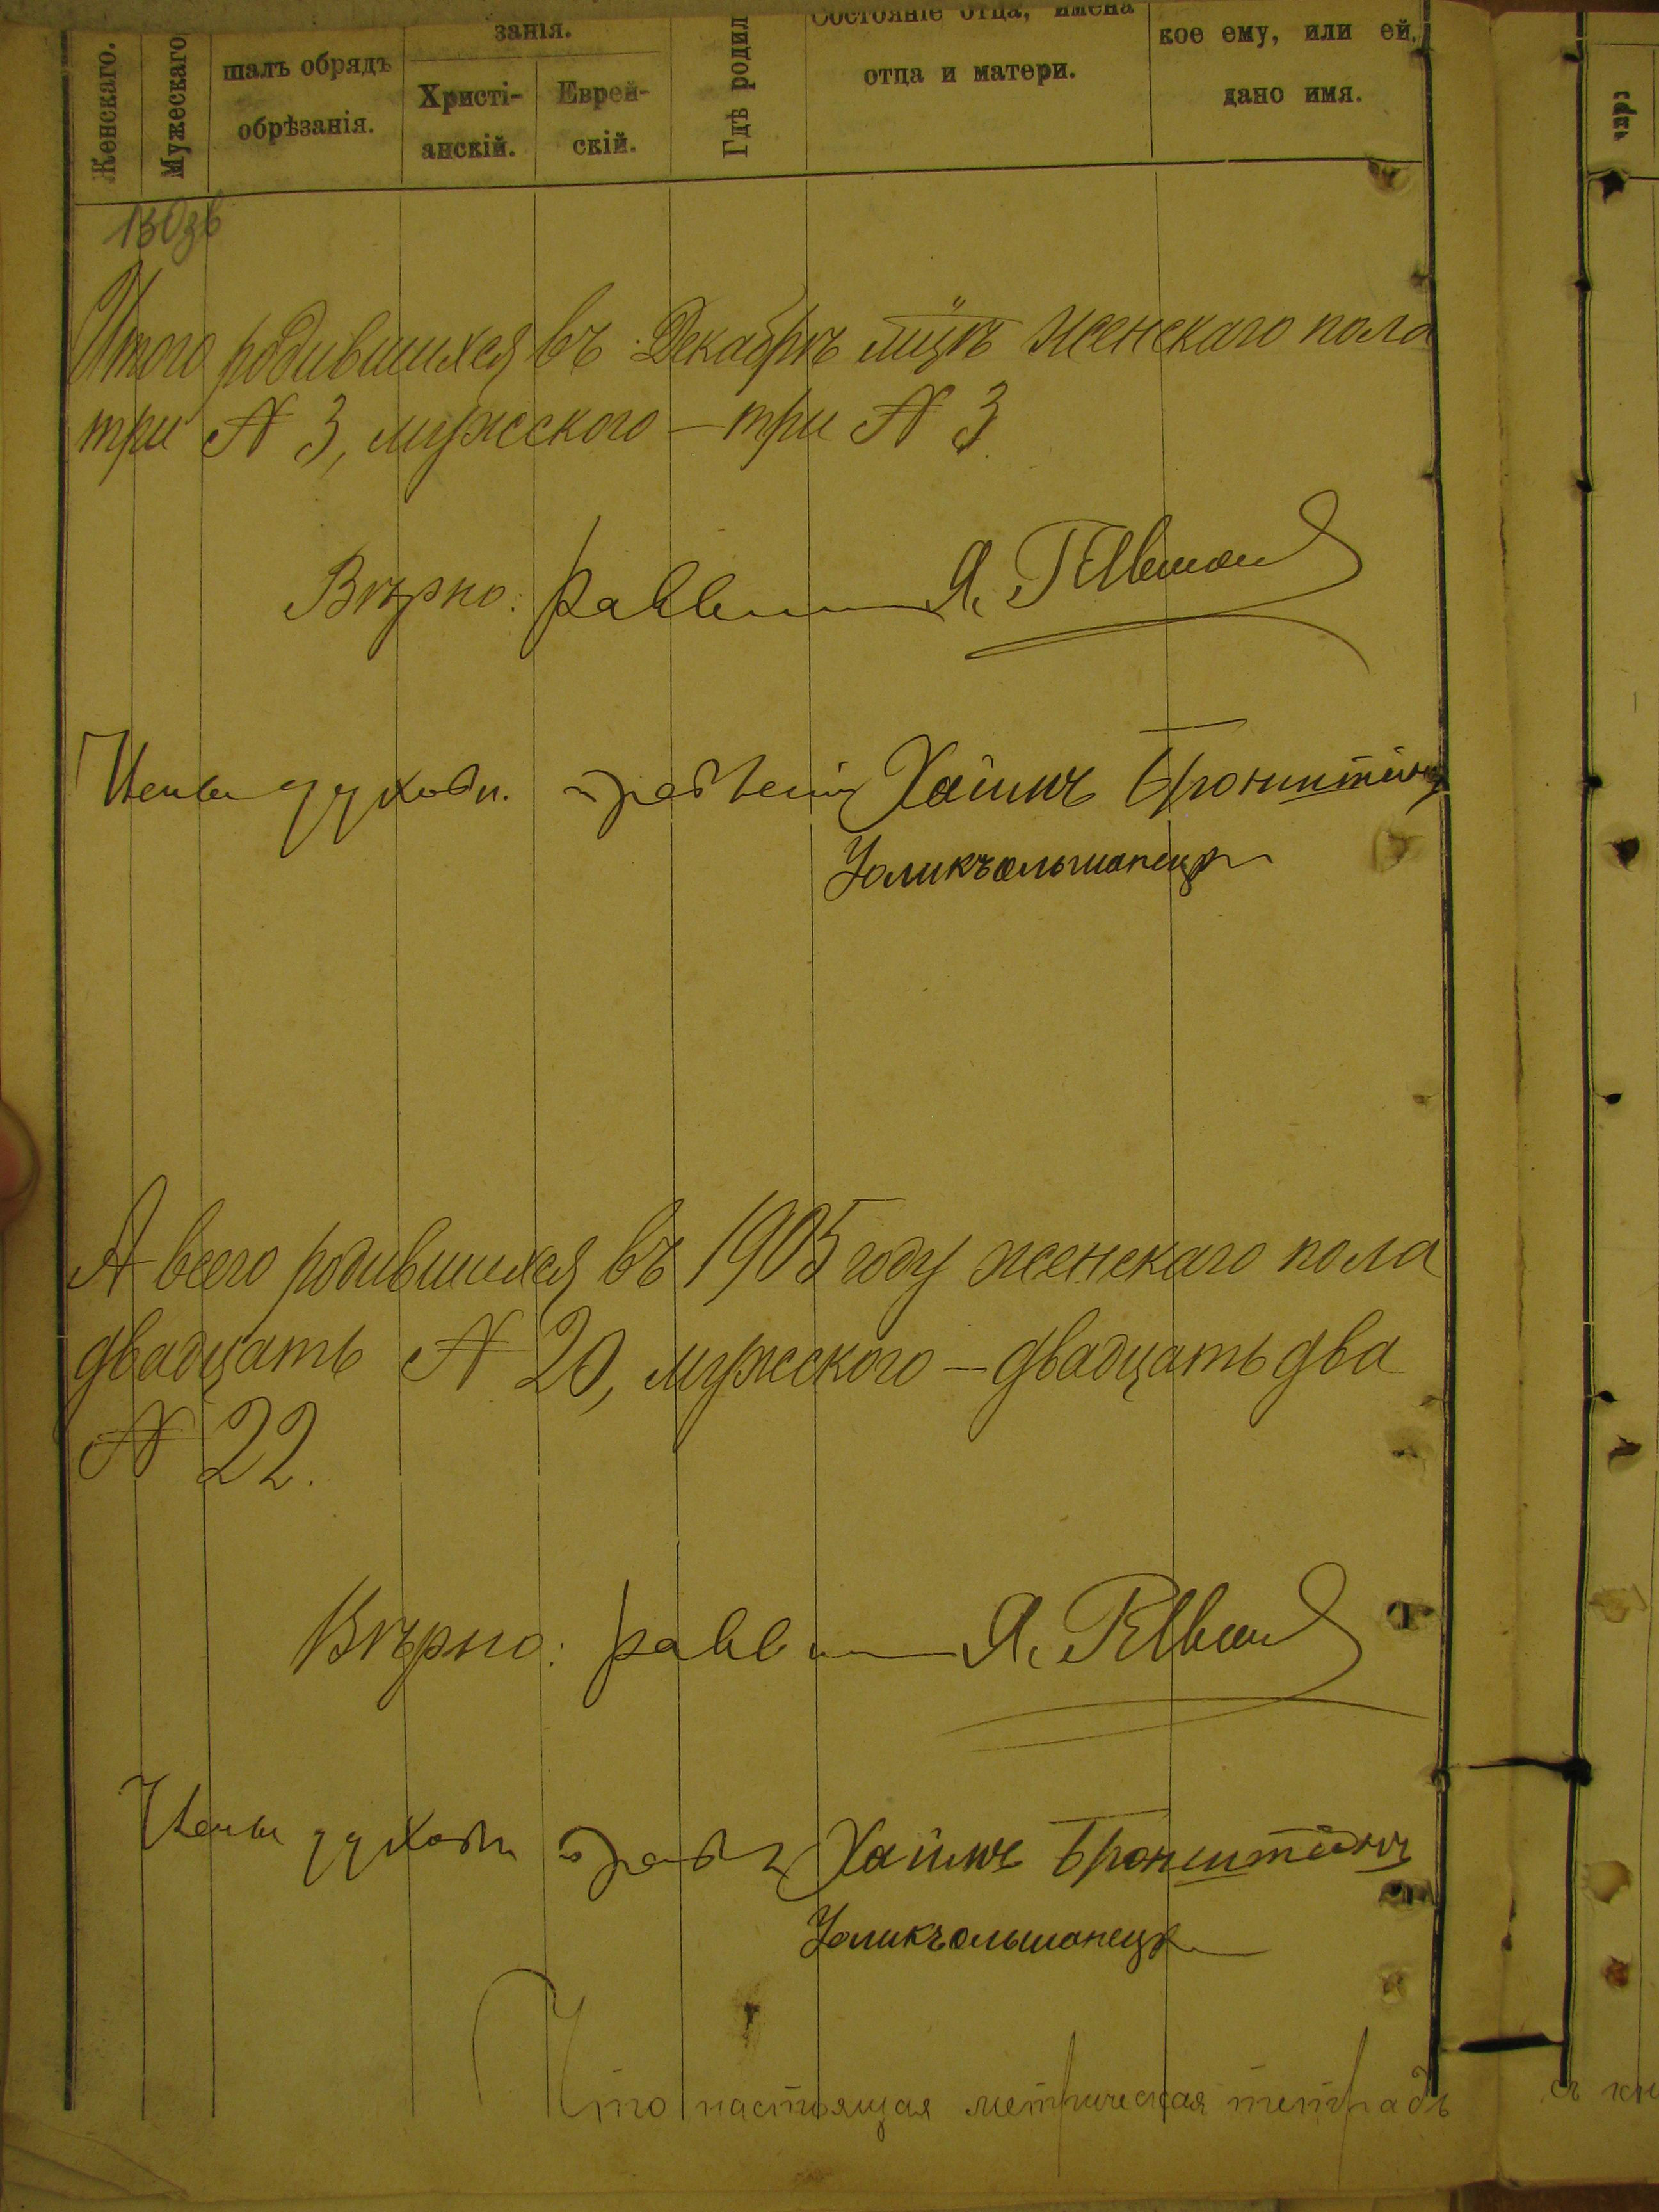 Женскаго.
Мужескаго
шалъ обрядъ
обрѣзанія.
занія.
Христі-
анскій.
Еврей-
скій.
Гдѣ родил
Состояніе отца, имена
отца и матери.
кое ему, или ей,
дано имя.
130зв
Итого родившихся въ Декабрѣ мцѣ женскаго пола
три № 3, мужского – три № 3
Вѣрно: Раввин Я.
Члены духовн. правленія Хаимъ Бронштейнъ
Уоликъольшанецкi
А всего родившихся въ 1905 году женскаго пола
двадцать № 20, мужского – двадцать два
№ 22.
Вѣрно: раввин Я.
Члены духовн правл Хаимъ Бронштейнъ
Что настоящая метрическая тетрадь